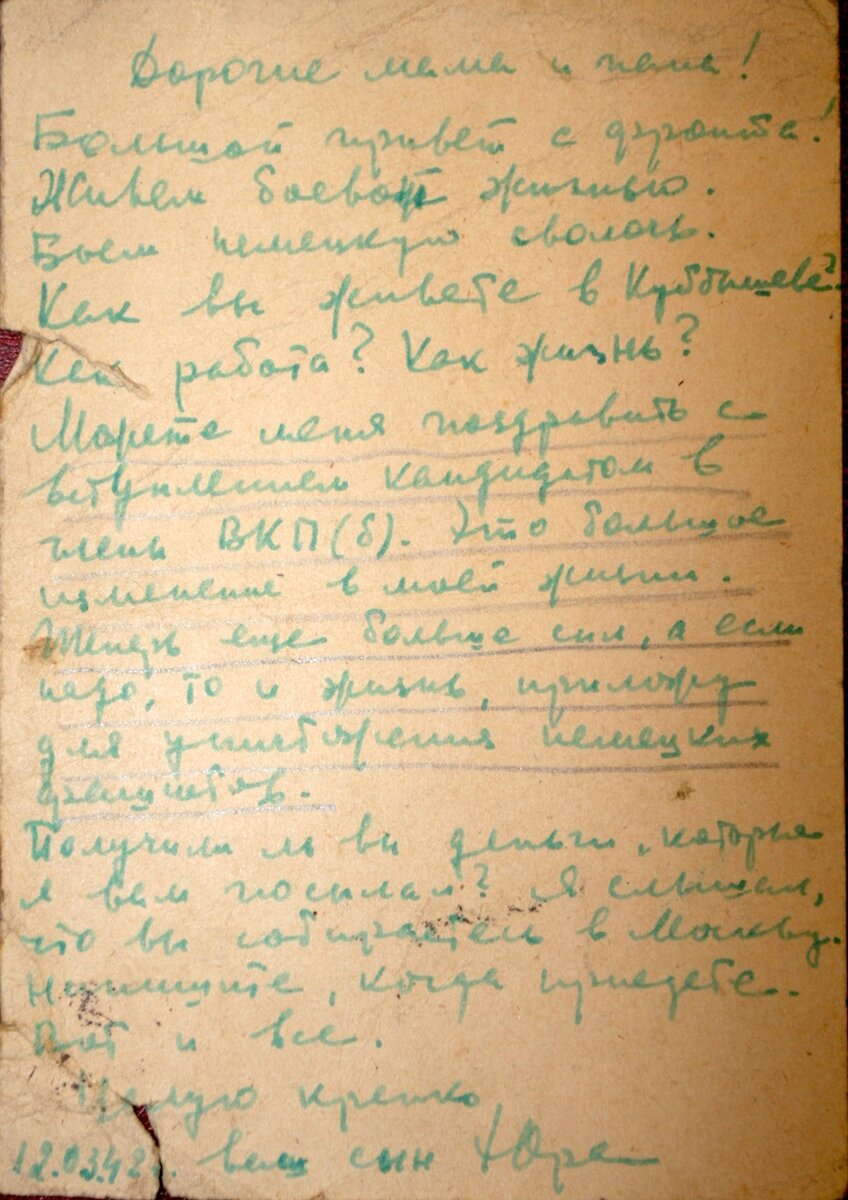 Дорогие мама и папа!
Большой привет с фронта!
Живем боевой жизнью.
Бьем немецкую сволочь.
Как вы живете в Куйбышеве?
Как работа? Как жизнь?
Можете меня поздравить с
вступлением кандидатом в
члены ВКП(б). Это большое
изменение в моей жизни.
Теперь еще больше сил, а если
надо, то и жизнь, приложу
для уничтожения немецких
фашистов.
Получили ль вы деньги, которые
я вам посылал? Я слышал,
что вы собираетесь в Москву.
Напишите, когда приедете.
Вот и все.
Целую крепко,
12.03.42г. ваш сын Юра